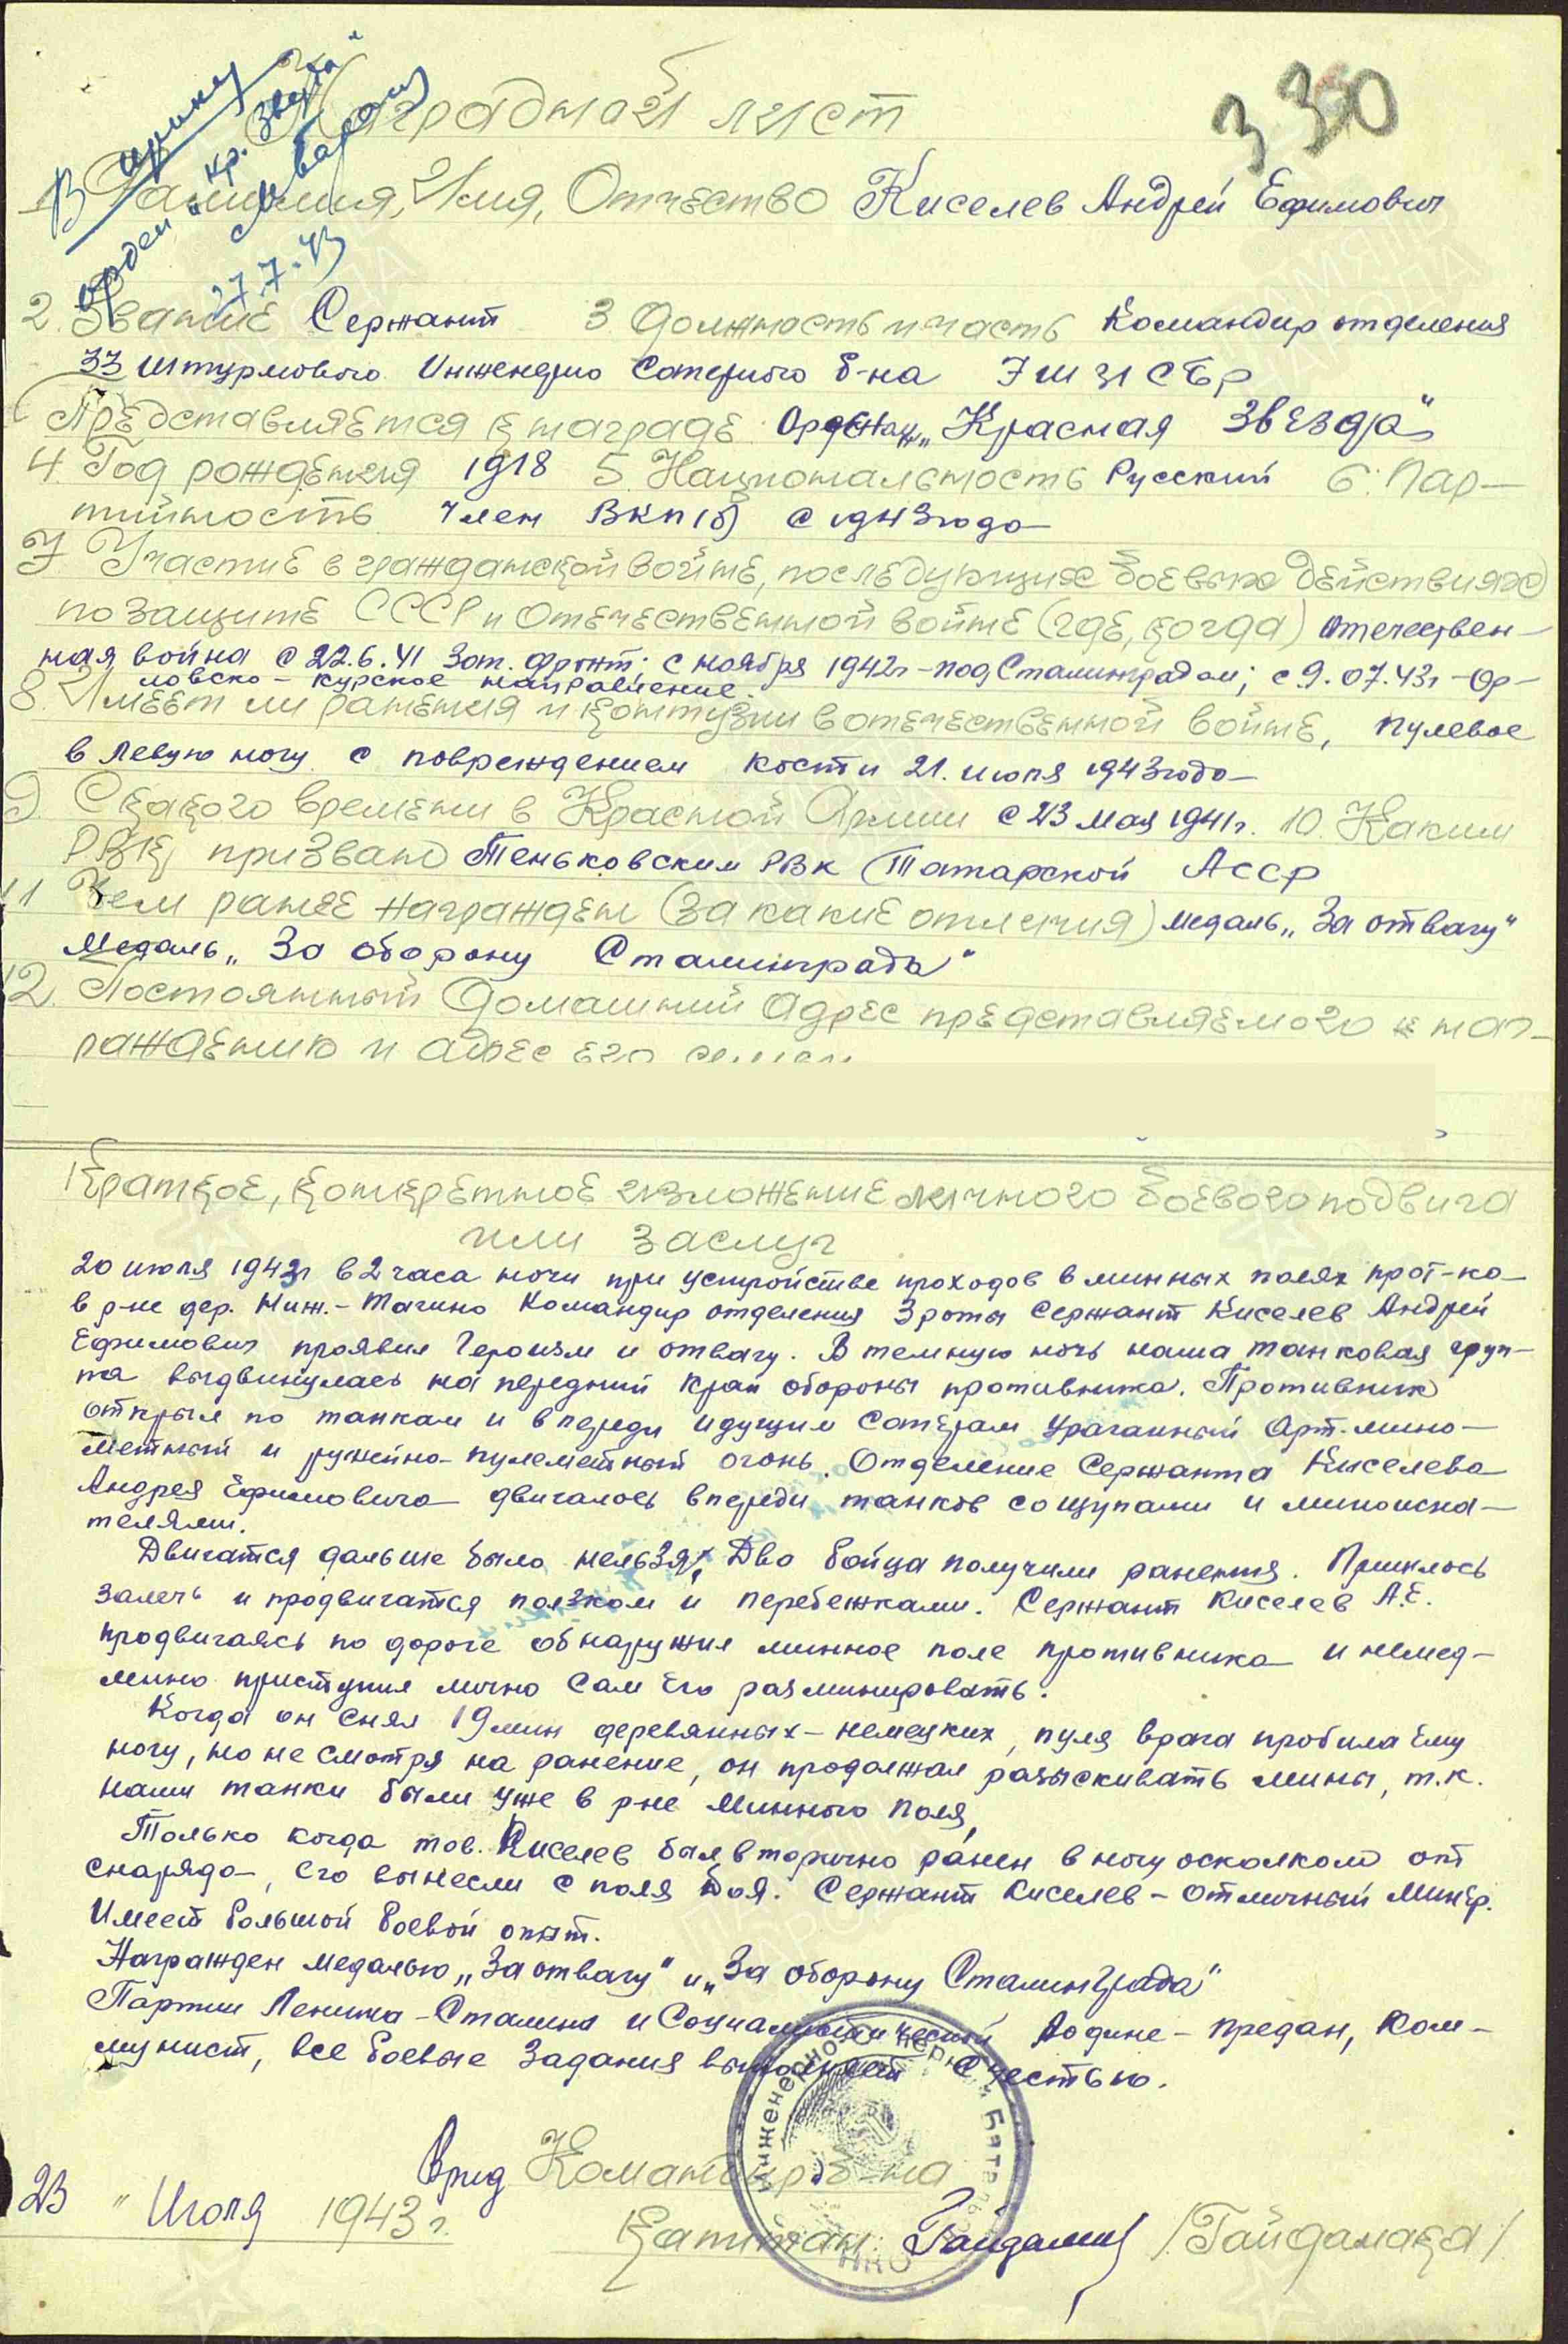 В приказ
орден „Кр. Звезда"
27.7.43
330
Наградной лист
1. Фамилия, Имя, Отчество Киселев Андрей Ефимович
2. Звание Сержант 3 Должность и часть Командир отделения
33 Штурмового Инженерно Саперного б-на 7 ШИСБр
Представляется к награде Орденом „Красная Звезда"
4. Год рождения 1918 5. Национальность Русский 6. Пар-
тийность Член ВКП(б) с 1943 года
7. Участие в гражданской войне, последующих боевых действиях
по защите СССР и Отечественной войне (где, когда) Отечествен-
ная война с 22.6.41 Зап. фронт; с ноября 1942г - под Сталинградом; с 9.07.43г - Ор-
ловско - Курское направление.
8. Имеет ли ранения и контузии в отечественной войне, пулевое
в левую ногу с повреждением кости 21. июля 1943 года
9. С какого времени в Красной Армии с 23 мая 1941г. 10. Каким
РВК призван Теньковским РВК (Татарской АССР
11 Чем ранее награжден (за какие отличия) медаль „За отвагу"
Медаль „За оборону Сталинграда"
12. Постоянный домашний адрес представляемого к наг-
раждению и адрес его семьи
Краткое, конкретное изложение личного боевого подвига
или заслуг
20 июля 1943г в 2 часа ночи при устройстве проходов в минных полях прот-ка
в р-не дер. Ниж.-Тагино Командир отделения 3 роты Сержант Киселев Андрей
Ефимович проявил Героизм и отвагу. В темную ночь наша танковая груп-
па выдвинулась на передний край обороны противника. Противник
открыл по танкам и впереди идущим Сапёрам ураганный Арт.-мино-
метный и ружейно-пулеметный огонь. Отделение Сержанта Киселева
Андрея Ефимовича двигалось впереди танков со щупами и миноиска-
телями.
Двигатся дальше было нельзя, Два бойца получили ранения. Пришлось
залечь и продвигатся ползком и перебежками. Сержант Киселев А.Е.
продвигаясь по дороге обнаружил минное поле противника и немед-
лино приступил лично Сам его разминировать.
Когда он снял 19 мин деревянных - немецких, пуля врага пробила ему
ногу, но не смотря на ранение, он продолжал разыскивать мины, т.к.
наши танки были уже в р-не Минного поля,
Только когда тов. Киселев был вторично ранен в ногу осколком от
снаряда, его вынесли с поля боя. Сержант Киселев - отличный Минёр.
Имеет большой боевой опыт.
Награжден медалью „За отвагу" и „За оборону Сталинграда"
Партии Ленина - Сталина и Социалистической Родине - предан, Ком-
мунист, все боевые задания выполняет с честью.
Врид Командир б-на
23 " Июля 1943г.
Капитан /Гайдамака/